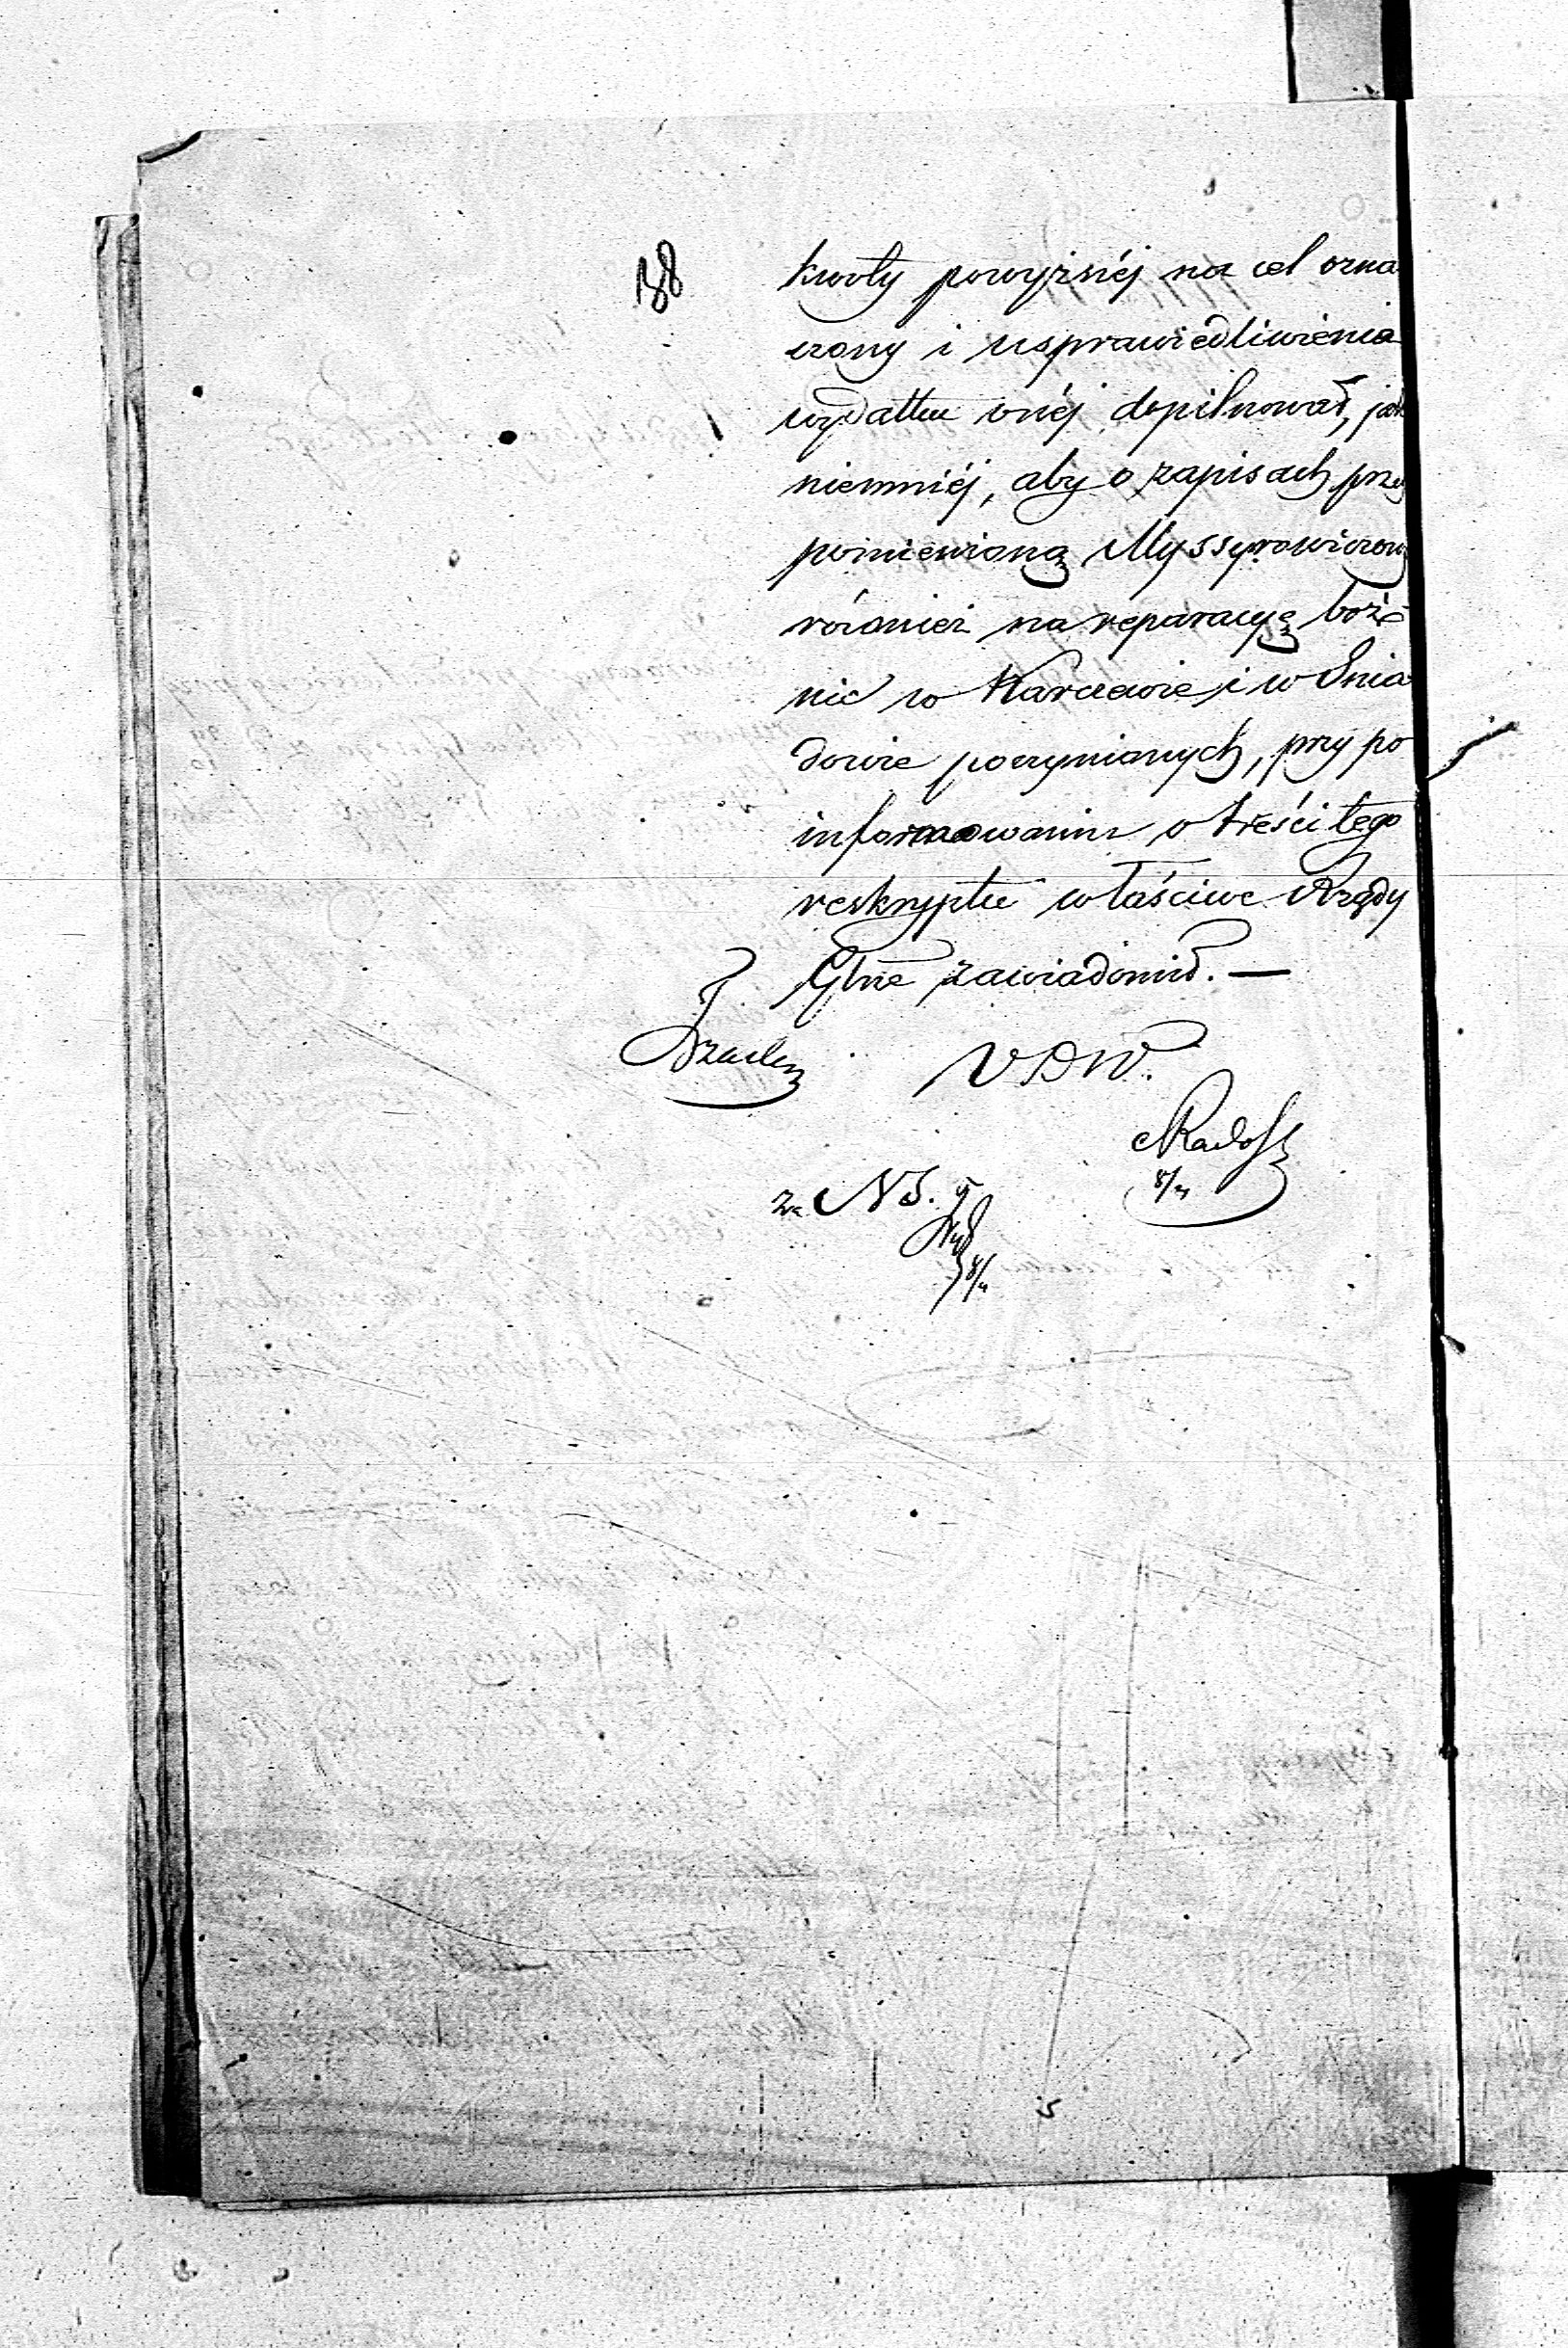 138
kwoty powyżnéj na cel ozna
czony i usprawiedliwienia
wydatku onéj dopilnował, jak
niemniéj, aby o zapisach przez
pomienioną Myssyrowiczową
również na reparacyę boż
nic w Karczewie i w Śnia
dowie poczynionych, przy po
informowaniu o treści tego
reskryptu właściwe Rządy
Gbne zawiadomił. —
VDW.
8/4
za NS.
8/4